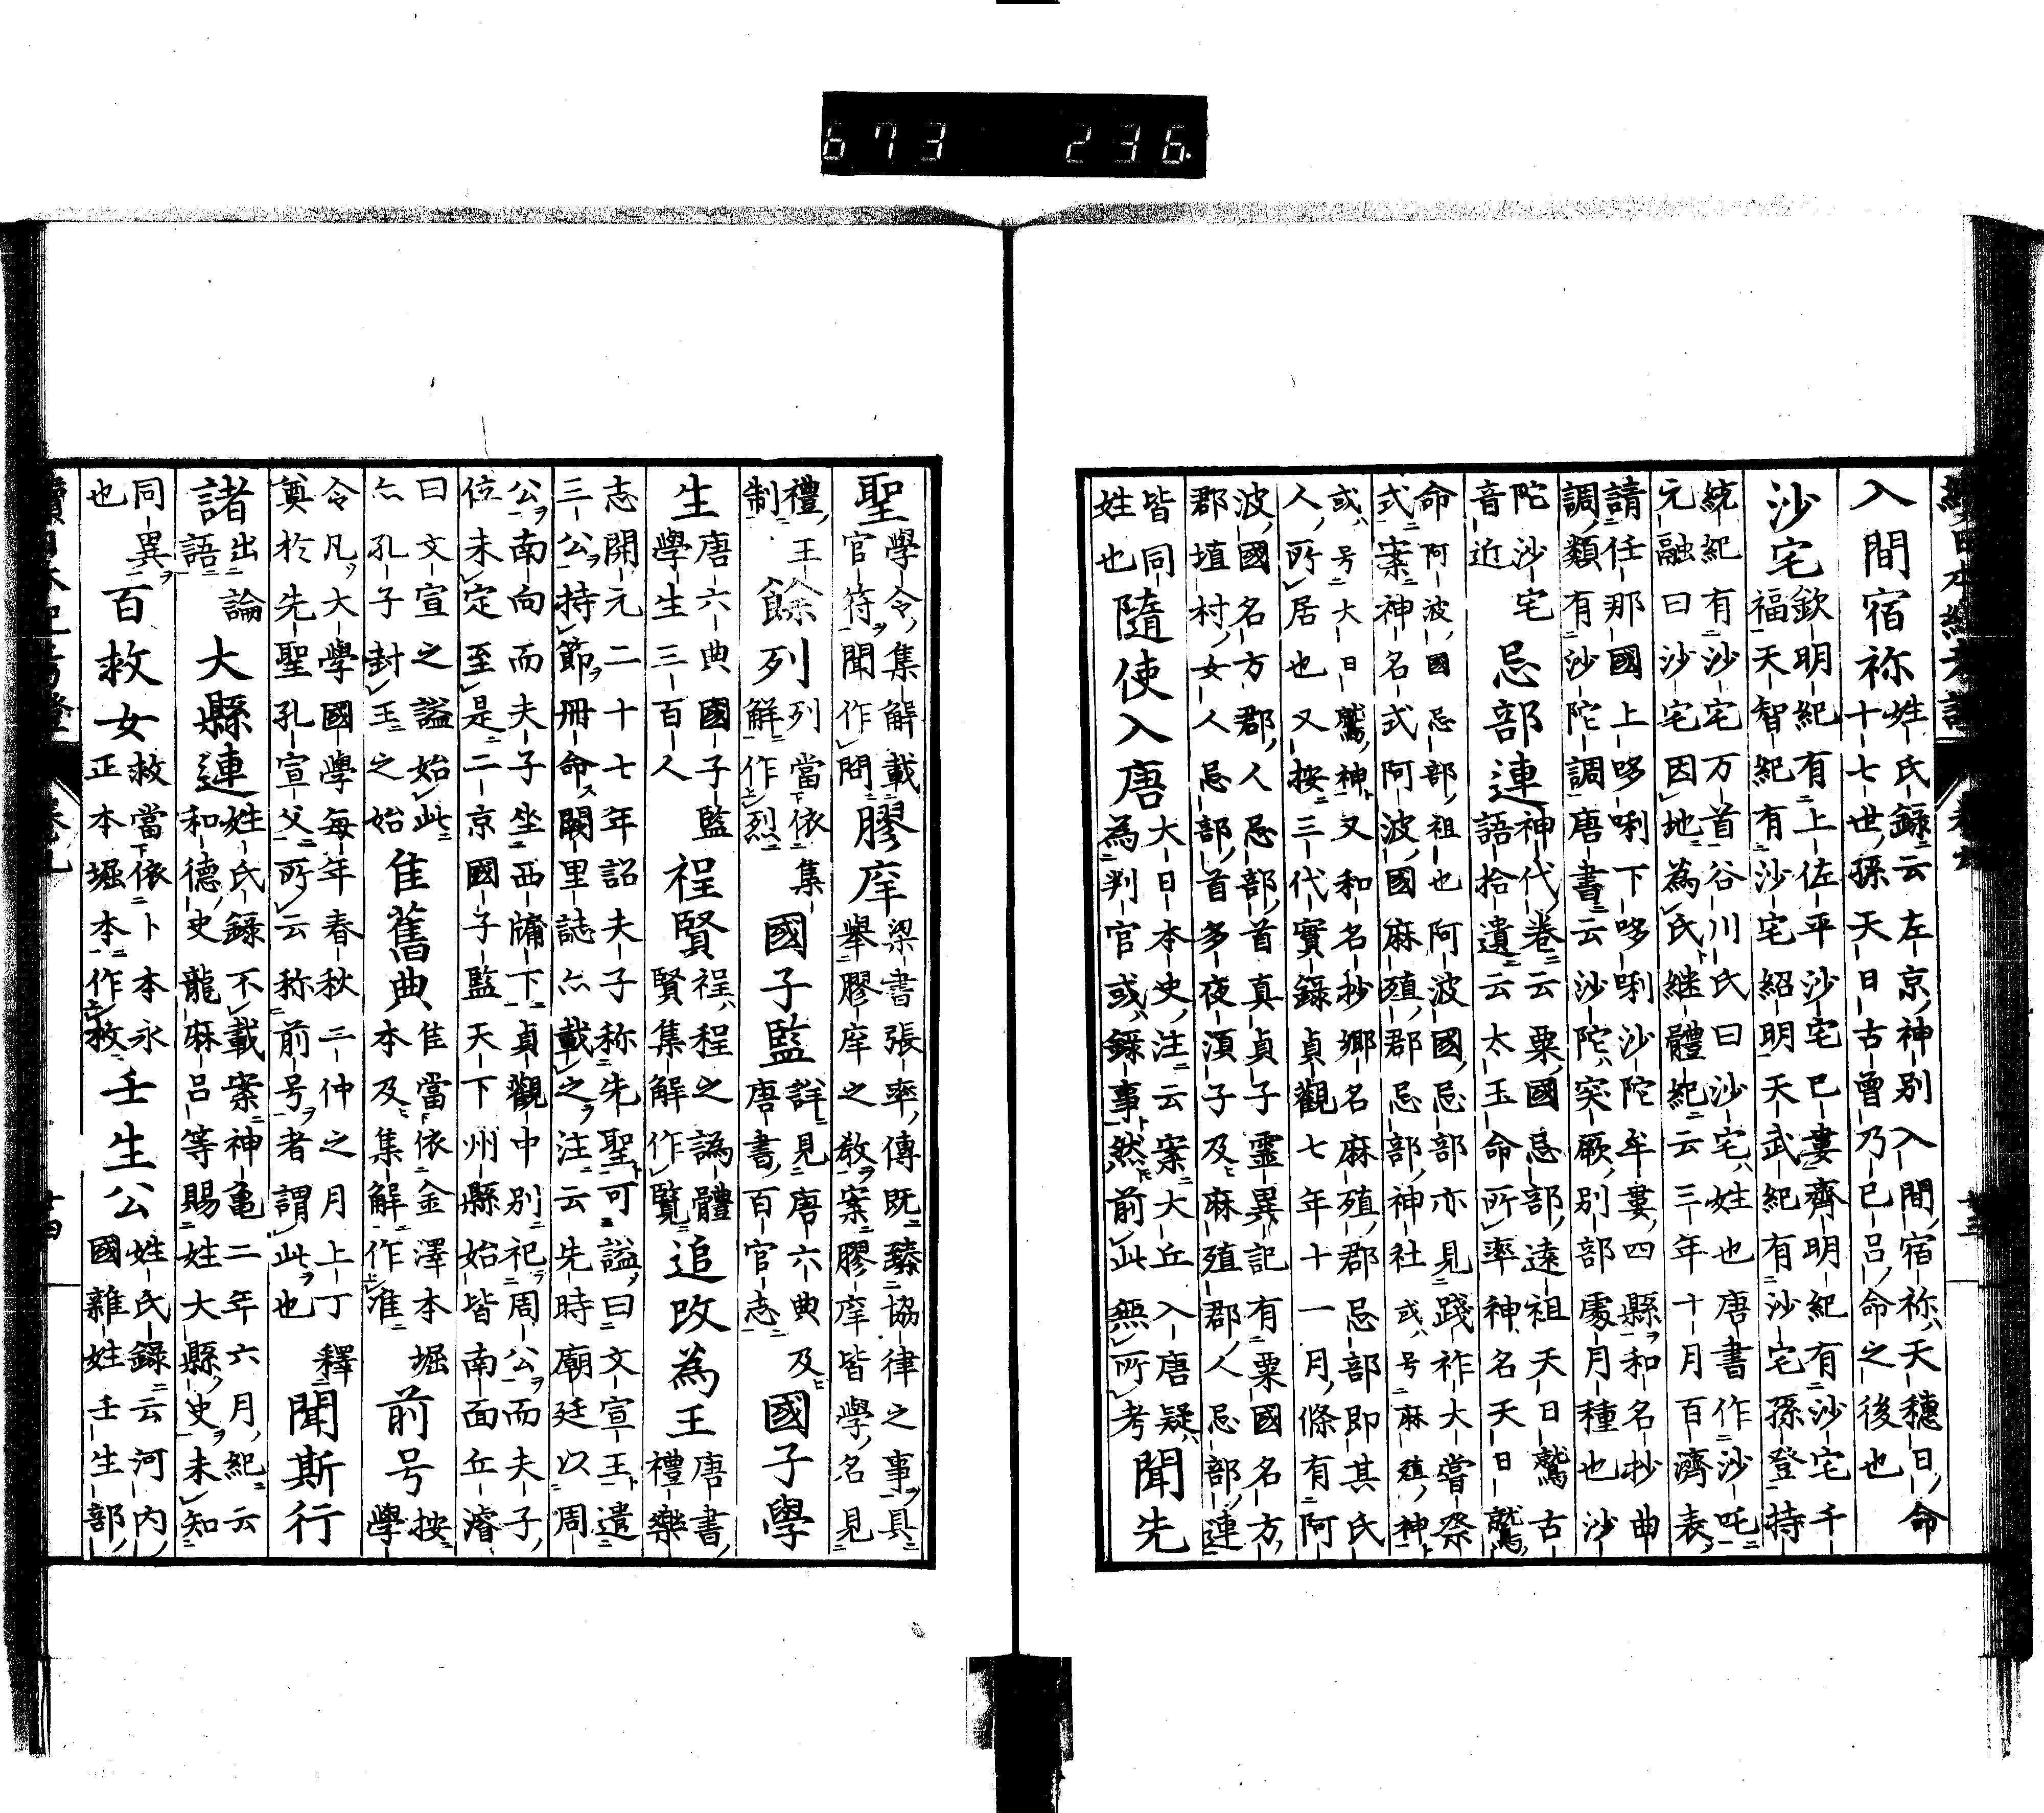 673 236.
入間宿祢
姓氏錄云左京神別入間宿祢天穗日命
十七世孫天日古曾乃巳呂命之後也
沙宅
欽明紀有上佐平沙宅巳婁齊明紀有沙宅千
福天智紀有沙宅紹明天武紀有沙宅孫登持
統紀有沙宅万首谷川氏曰沙宅姓也唐書作沙吒
元融曰沙宅因地為氏継體紀云三年十月百濟表
請任那國上哆唎下哆唎沙陀牟婁四縣和名抄曲
調類有沙陀調唐書云沙陀突厥別部處月種也沙
陀沙宅
音近
忌部連
神代卷云粟國忌部遠祖天日鷲古
語拾遺云太玉命所率神名天日鷲
命阿波國忌部祖也阿波國忌部亦見踐祚大嘗祭
式案神名式阿波國麻殖郡忌部神社或号麻殖神
或号大日鷲神又和名抄郷名麻殖郡忌部即其氏
人所居也又按三代實錄貞觀七年十一月條有阿
波國名方郡人忌部首真貞子靈異記有粟國名方
郡埴村女人忌部首多夜湏子及麻殖郡人忌部連
皆同
姓也
隨使入唐
大日本史注云案大丘入唐疑
為判官或錄事然前此無所考
聞先
聖
學令集解載
官符聞作問
膠庠
梁書張率傳既臻協律之事具
舉膠庠之敎案膠庠皆學名見
禮王
制
餘列
列當依集
解作烈
國子監
詳見唐六典及
唐書百官志
國子學
生
唐六典國子監
學生三百人
程賢
程程之譌體
賢集解作覽
追改為王
唐書
禮樂
志開元二十七年詔夫子称先聖可謚曰文宣王遣
三公持節冊命闕里誌亦載之注云先時廟廷以周
公南向而夫子坐西牖下貞觀中別祀周公而夫子
位未定至是二京國子監天下州縣始皆南面丘濬
曰文宣之謚始此
亦孔子封王之始
隹舊典
隹當依金澤本堀
本及集解作准
前号
按
學
令凡大學國學每年春秋二仲之月上丁釋
奠於先聖孔宣父所云称前号者謂此也
聞斯行
諸
出論
語
大縣連
姓氏錄不載案神亀二年六月紀云
和德史龍麻呂等賜姓大縣史未知
同異
也
百救女
救當依卜本永
正本堀本作枚
壬生公
姓氏錄云河内
國雜姓壬生部